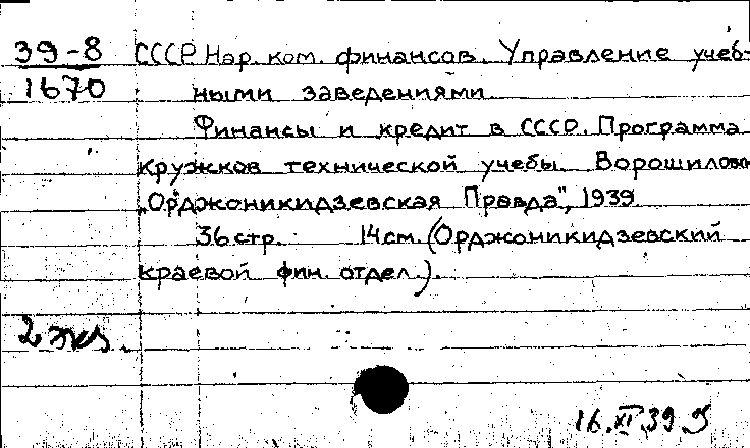 39-8
1670
СССР Нар. ком. финансов. Управление учеб-
ными заведениями.
Финансы и кредит в СССР. Программа
кружков технической учебы. Ворошиловск
„Орджоникидзевская Правда", 1939.
36 стр. 14 см. (Орджоникидзевский
краевой фин. отдел.).
2 экз.
16.XI 39 г